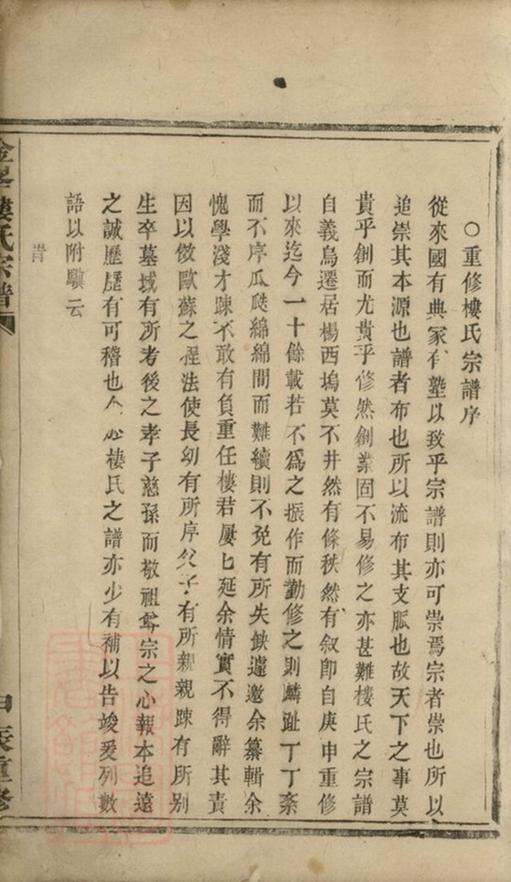 ○重修樓氏宗譜序
從來國有典家有塾以致乎宗譜則亦可崇焉宗者崇也所以
追崇其本源也譜者布也所以流布其支脈也故天下之事莫
貴乎創而尤貴乎修然創業固不易修之亦甚難樓氏之宗譜
自義烏遷居楊西塢莫不井然有條秩然有叙卽自庚申重修
以來迄今一十餘載若不爲之振作而勤修之則麟趾丁丁紊
而不序瓜瓞綿綿間而難續則不免有所失缺遽邀余纂輯余
愧學淺才踈不敢有負重任樓君屢七延余情實不得辭其責
因以倣歐蘇之程法使長幼有所序父子有所親親踈有所别
生卒墓域有所考後之孝子慈孫而敬祖尊宗之心報本追遠
之誠歷歷有可稽也今於樓氏之譜亦少有補以告竣爰列數
語以附驥云
肯
樓氏宗譜
甲辰重修